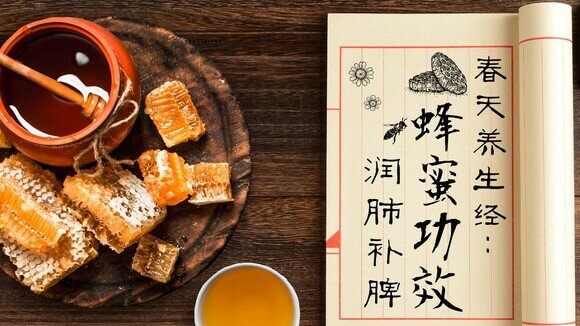 春天养生经：
蜂蜜功效
润肺补脾